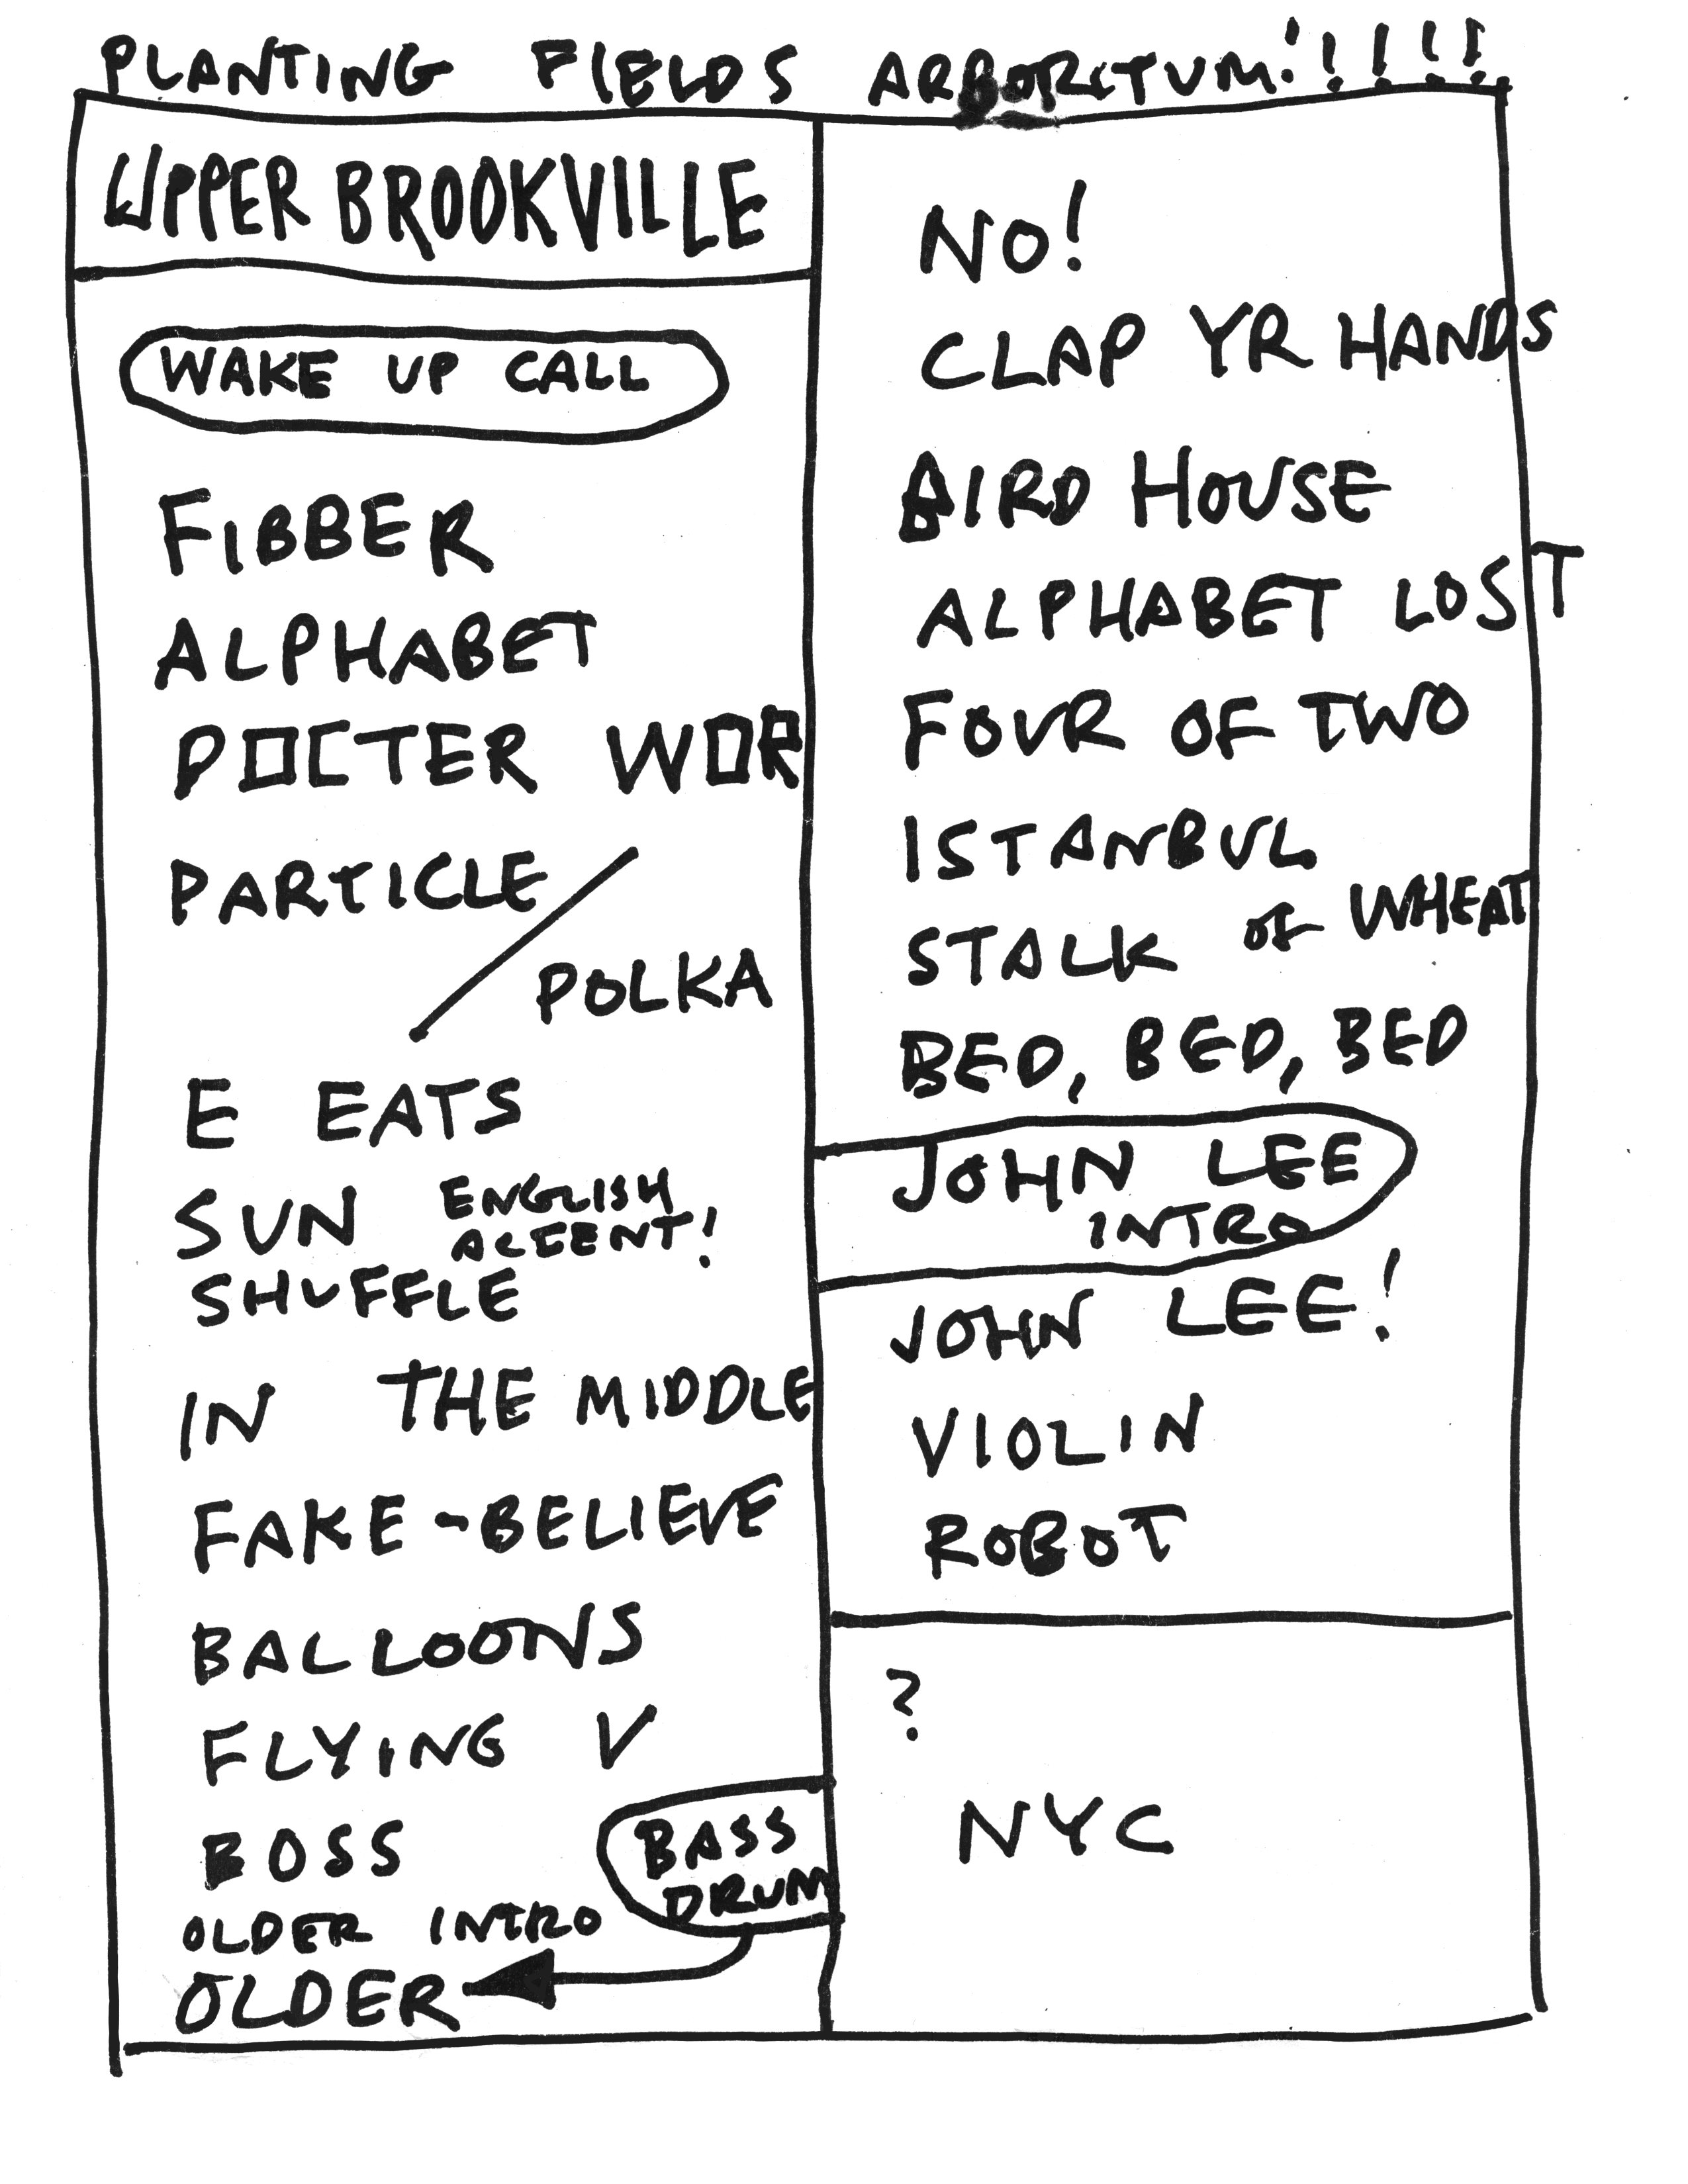 PLANTING FIELDS ARBORETUM!!!!!
UPPER BROOKVILLE
WAKE UP CALL
FIBBER
ALPHABET
DOCTER WOR
PARTICLE
POLKA
E EATS
SUN ENGLISH
ACCENT!
SHUFFLE
IN THE MIDDLE
FAKE-BELIEVE
BALLOONS
FLYING V
BOSS
BASS
DRUM
OLDER INTRO
OLDER
NO!
CLAP YR HANDS
BIRD HOUSE
ALPHABET LOST
FOUR OF TWO
ISTANBUL
STALK OF WHEAT
BED, BED, BED
JOHN LEE
INTRO
JOHN LEE!
VIOLIN
ROBOT
?
NYC